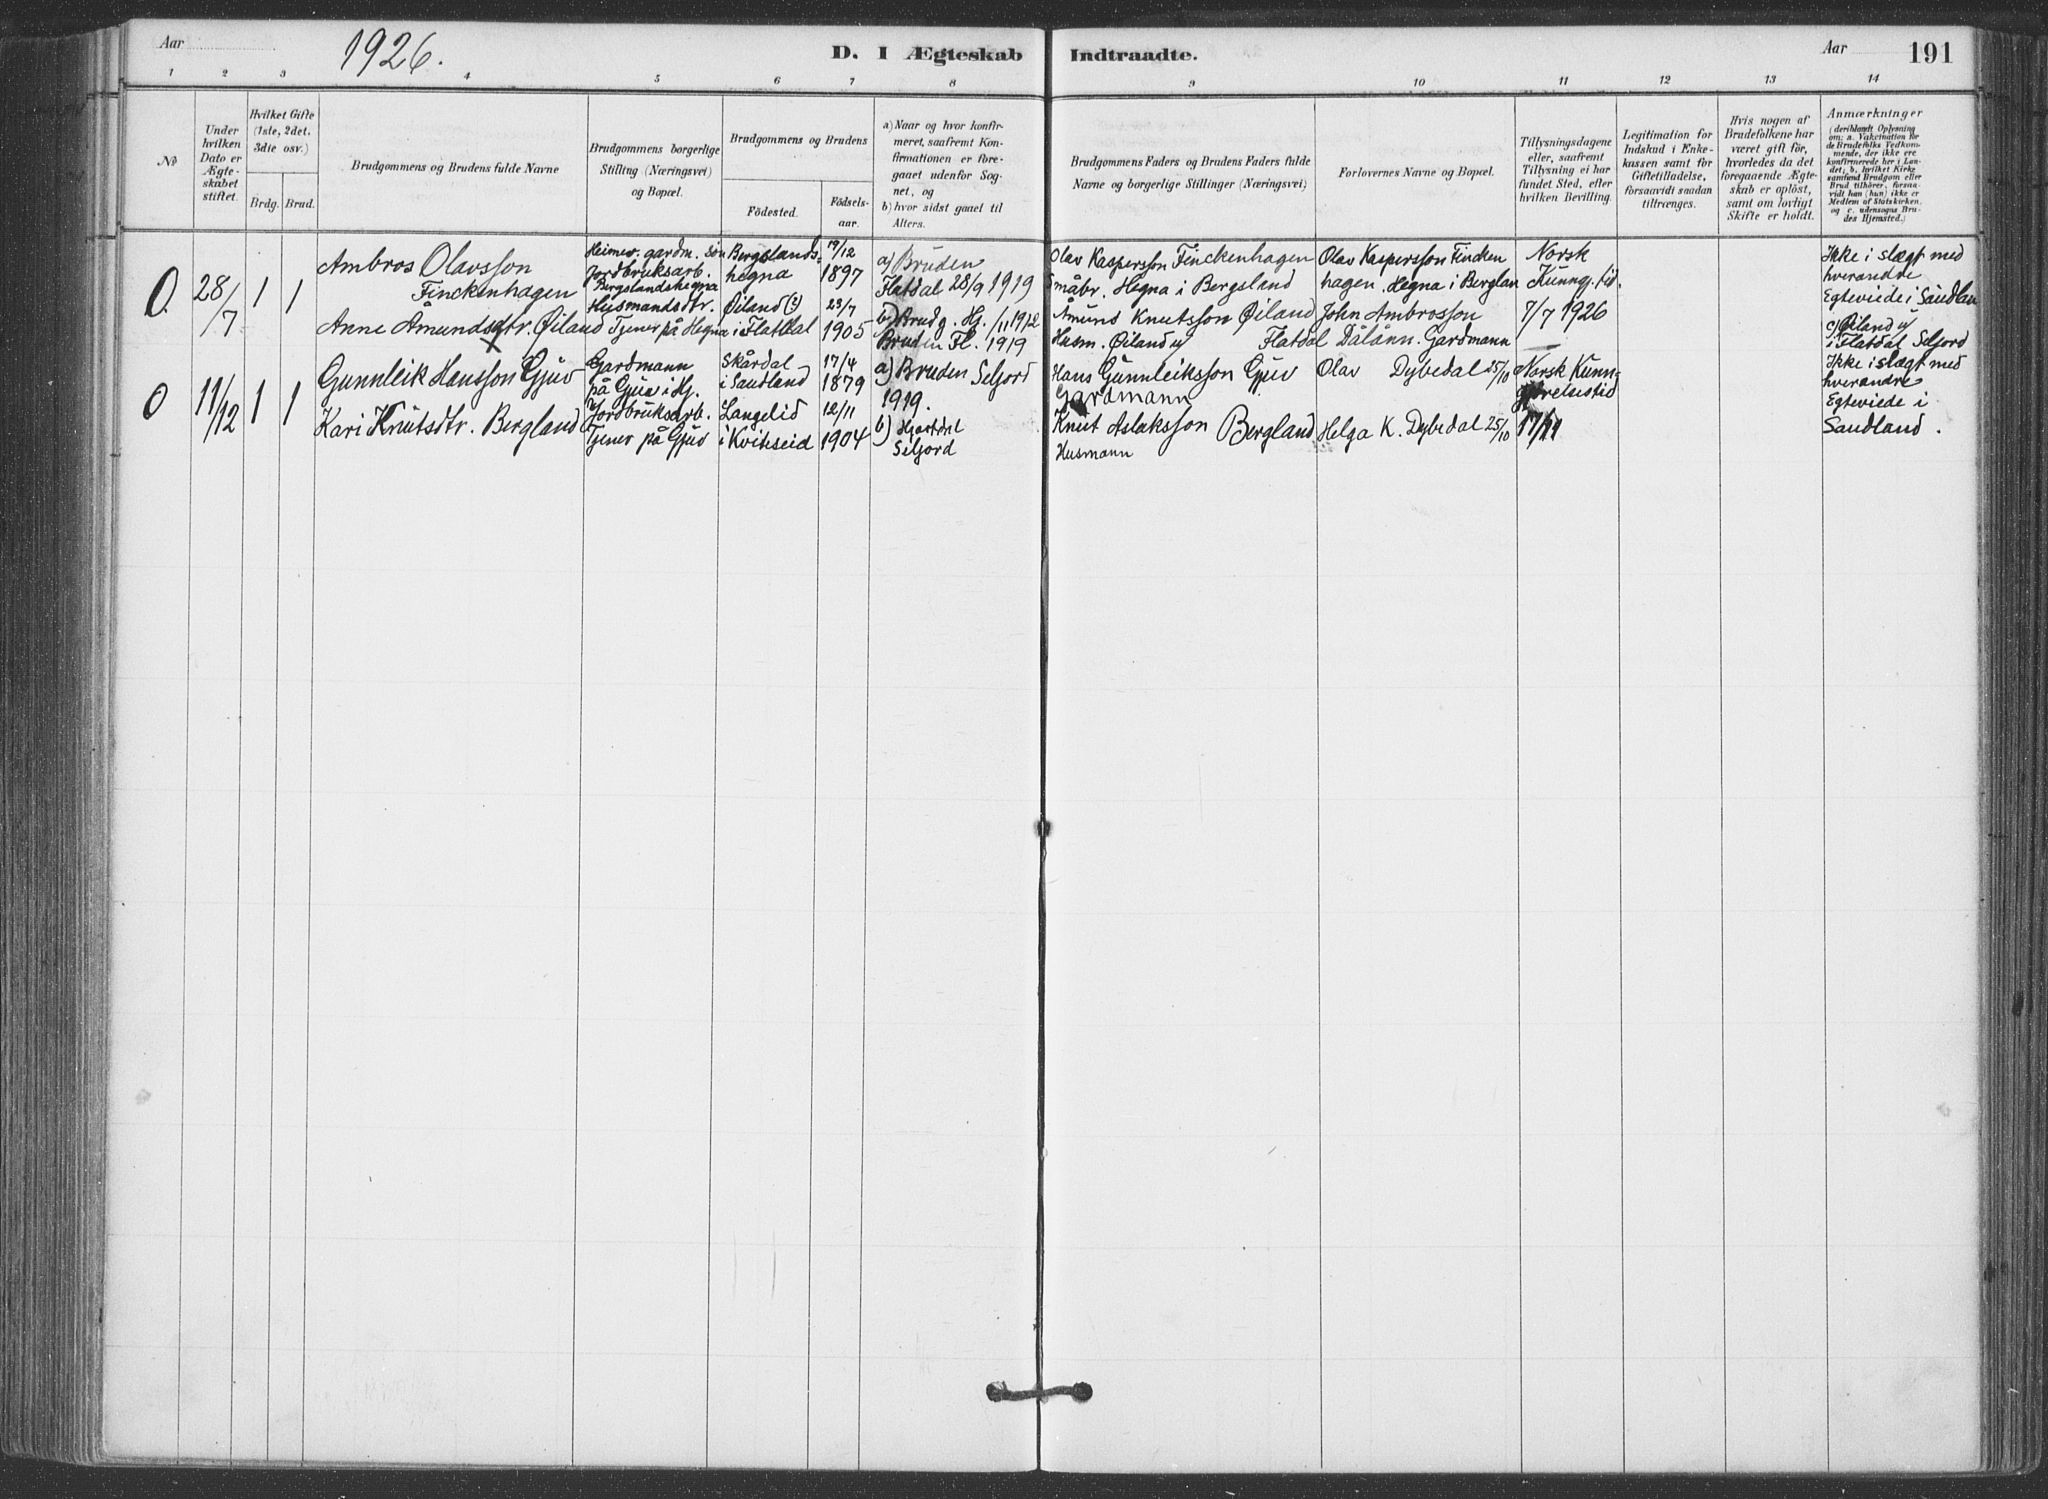 Aar
1926.
D. I Ægteskab Indtraadte.
Aar
191
1 2 3 4 5 6 7 8 9 10 11 12 13 14
No
Under hvilken Dato er Ægteskabet stiftet.
Hvilket Gifte (1ste, 2det, 3die osv.)
Brdg. Brud.
Brudgommens og Brudens fulde Navne
Brudgommens borgerlige Stilling (Næringsvei) og Bopæl.
Brudgommens og Brudens
Födested.
Födselsaar.
a) Naar og hvor konfirmeret, saafremt Konfirmationen er foregaaet udenfor Sognet, og
b) hvor sidst gaaet til Alters.
Brudgommens Faders og Brudens Faders fulde Navne og borgerlige Stillinger (Næringsvei)
Forlovernes Navne og Bopæl.
Tillysningsdagene eller, saafremt Tillysning ei har fundet Sted, efter hvilken Bevilling.
Legitimation for Indskud i Enkekassen samt for Giftetilladelse, forsaavidt saadan tiltrænges.
Hvis nogen af Brudefolkene har været gift för, hvorledes da det foregaaende Ægteskab er oplöst, samt om lovligt Skifte er holdt.
Anmærkninger
(deriblandt Oplysning om: a. Vakcination for de Brudefolks Vedkommende, der ikke ere konfirmerede her i Landet; b. hvilket Kirkesamfund Brudgom eller Brud tilhörer, forsaavidt han (hun) ikke er Medlem af Statskirken, og c. udensogns Brudes Hjemsted.)
O. 28/7 1 1
Ambros Olavsson
Finckenhagen
Anne Åmundsdtr. Øiland
Heimev. gardm. søn
Jordbruksarb.
Bergslandshegna
Husmandsdtr.
Tjener på Hegna
Bergslandshegna
Øiland (?)
i Flatdal
19/12
1897
23/7
1905
a) Bruden
Flatdal 28/9 1919
b) Brudg. Hj. /11 1912
Bruden Fl. 1919
Olav Kaspersson Finckenhagen
Småbr. Hegna i Bergsland
Åmund Knutsson Øiland
Husm. Øiland Flatdal
Olav Kaspersson Finckenhagen. Hegna i Berglan
John Ambrosson
Dålånn. Gardmann
Norsk
Kunng. tid.
7/7 1926
Ikke i slægt med
hverandre
Egteviede i Saudlan
c) Øiland
i Flatdal Seljord
O 11/12 1 1
Gunnleik Hansson Gjuv
Kari Knutsdtr. Bergland
Gardmann
på Gjuv i Hj.
Jordbruksarb.
Tjener på Gjuv
Skårdal
i Saudland
Langelid
i Kvitseid
17/4
1879
12/11
1904
a) Bruden Seljord
1919.
b) Hjartdal
Seljord
Hans Gunnleiksson Gjuv
Gardmann
Knut Aslaksson Bergland
Husmann
Olav Dybedal 25/10
Helga K. Dybedal 25/10
Norsk Kunngjørelsestid
17/11
Ikke i slægt med
hverandre
Egteviede i
Saudland.